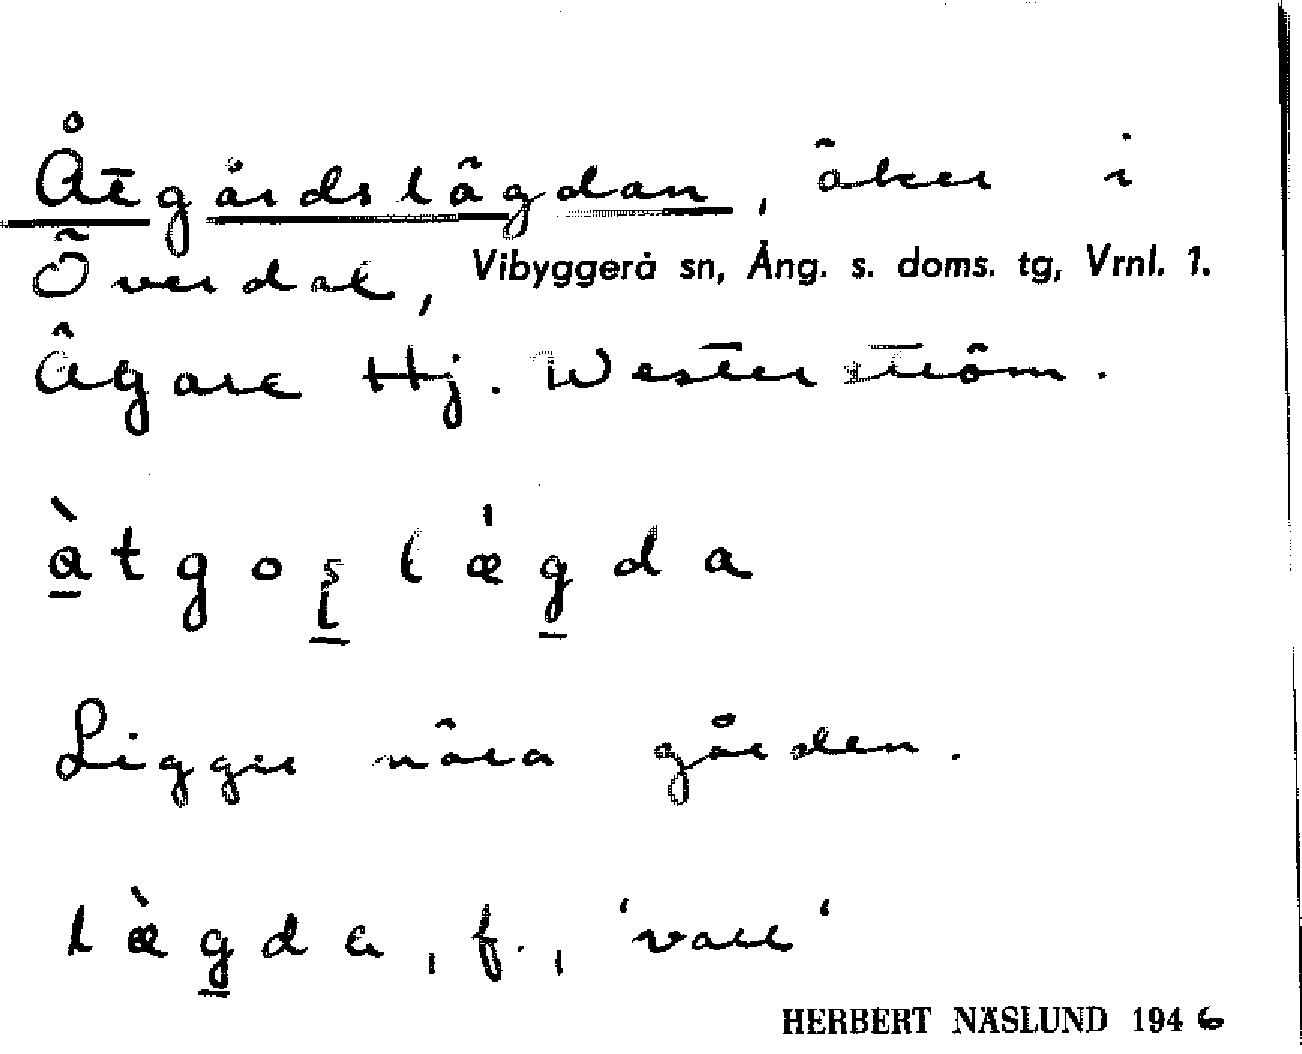 Åtgårdslägdan, åker i
Överdal, Vibyggerå sn, Ång. s. doms. tg, Vrnl. 1.
Ägare Hj. Westerström.
àtgoşlǽgda
Ligger nära gården.
læ̀gda, f., 'vall'
HERBERT NÄSLUND 1946